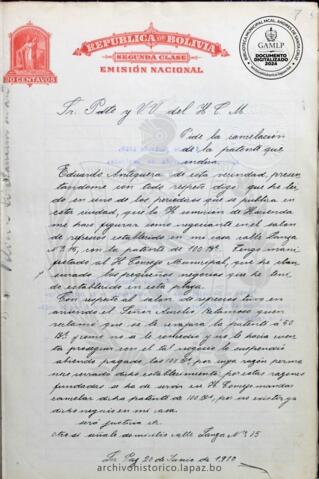 7
REPÚBLICA DE BOLIVIA
SEGUNDA CLASE
EMISIÓN NACIONAL
20 CENTAVOS
GAMLP
DOCUMENTO
DIGITALIZADO
2024
Sr. Pdte y V.V. del H. C. M.
Pide la cancelación
de la patente que
indica.
Eduardo Antequera de esta vecindad, presen
tandome con todo respeto digo: que he lei
do en uno de los periodicos que se publica en
esta ciudad, que la H. comision de Hacienda
me hace figurar como negociante en el salon
de refrescos establecido en mi casa calle Yanga
Nº 15, con la patente de 100 Bs. Tengo mani
festado al H. Consejo Municipal, que he clau
surado los pequeños negocios que he teni
do establecido en esta plaza.
Con respecto al salon de refrescos tuvo en
arriendo el Señor Aurelio Belmonte quien
reclamó que se le rebajara la patente á 40
Bs. y como no se le remedió y no le hacia cuen
ta proseguir con el tal negocio lo suspendió
abiendo pagado los 100 Bs. por cuya razón perma
nece cerrado dicho establecimiento; por estas razones
fundadas se ha de servir su H. Consejo mandar
cancelar dicha patente de 100 Bs. por no existir ya
dicho negocio en mi casa.
será justicia etc.
Otro si: señalo domicilio calle Yanga Nº 15
La Paz 20 de Junio de 1910
archivohistorico.lapaz.bo